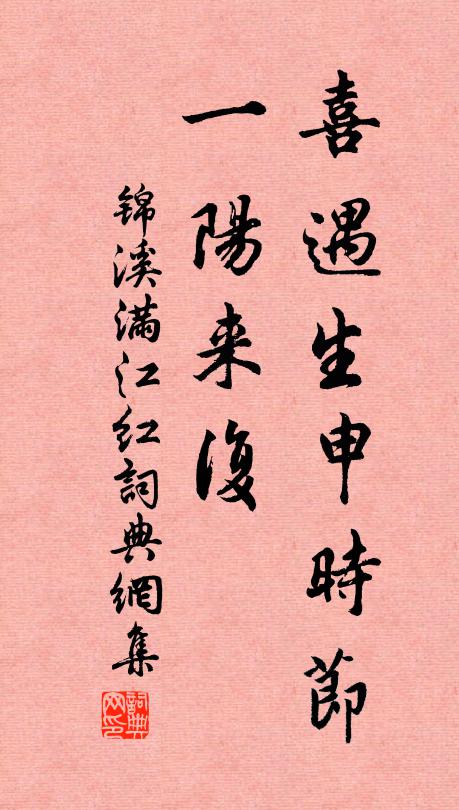 喜遇生申時節
一陽来復
锦溪满江红詞典網集
詞典网印